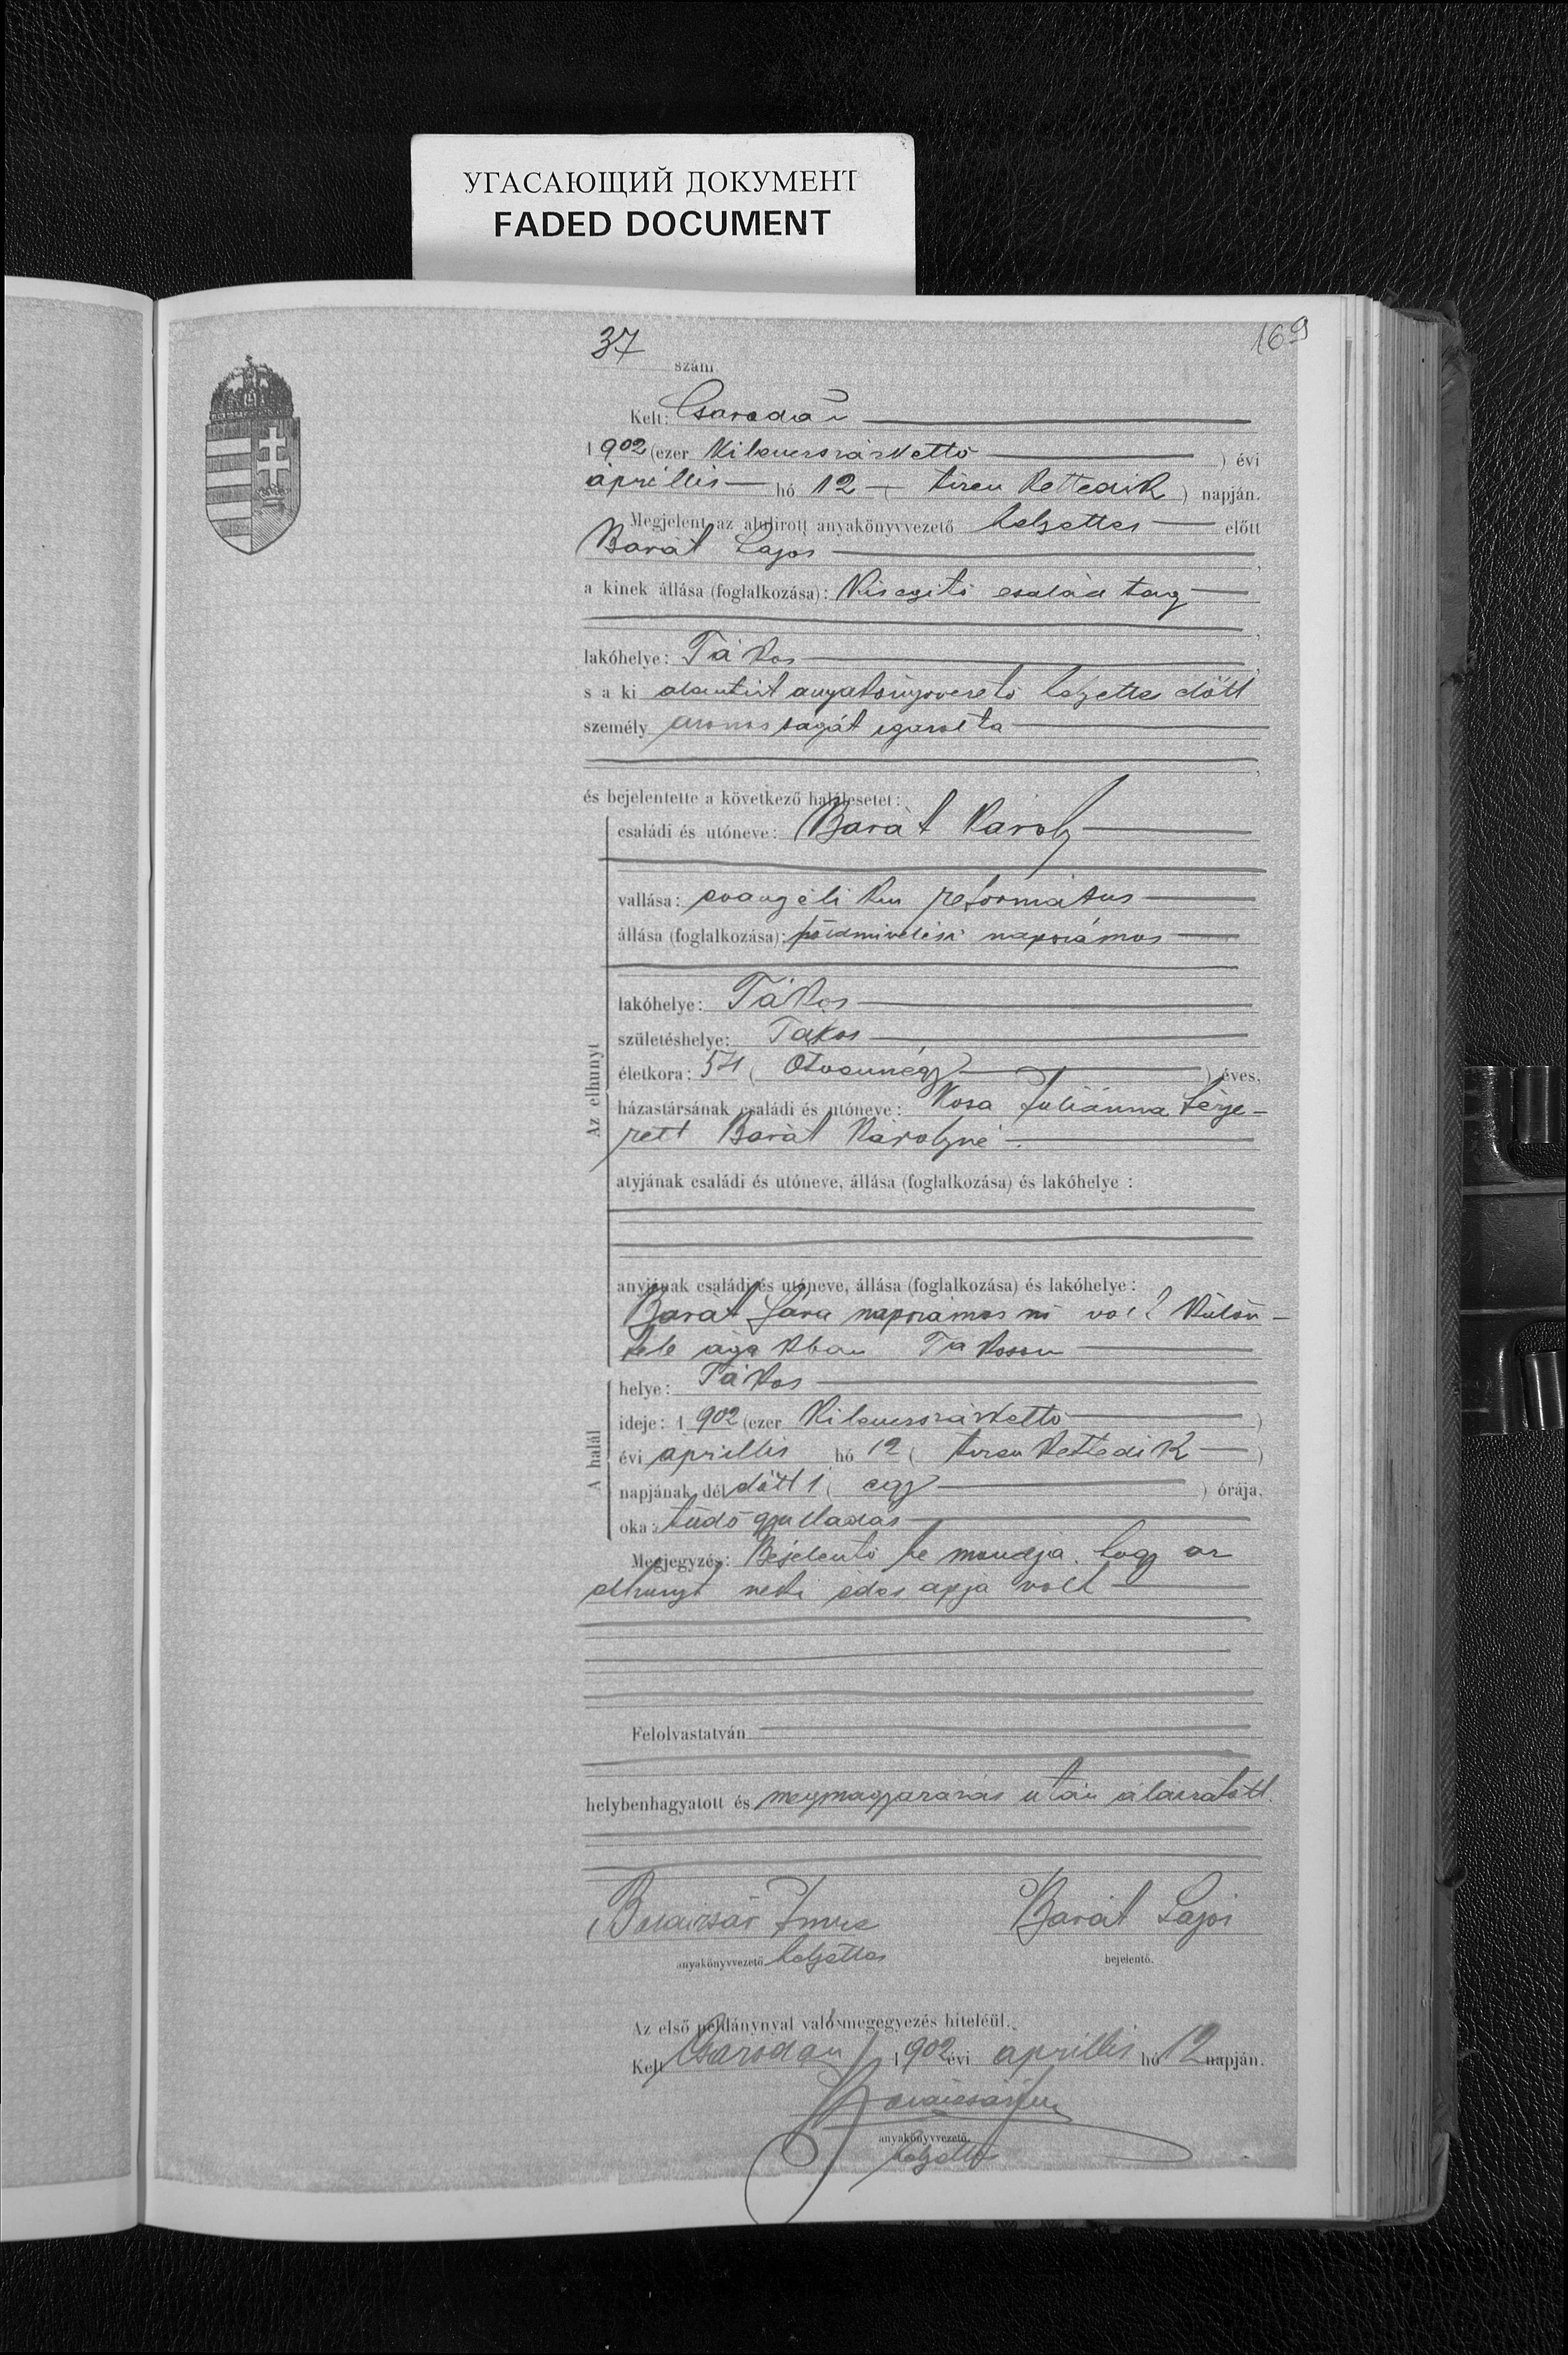 УГАСАЮЩИЙ ДОКУМЕНТ
FADED DOCUMENT
169
37 szám
Kelt: Csarodán
1902 (ezer kilencszázkettő ) évi
áprillis hó 12 ( tizen kettedik ) napján.
Megjelent az alulirott anyakönyvvezető helyettes előtt
Barát Lajos ,
a kinek állása (foglalkozása): kisegitő család tag
lakóhelye: Tákos ,
s a ki alantirt anyakönyvvezető helyettes előtt
személy azonosságát igazolta
,
és bejelentette a következő halálesetet:
Az elhunyt
családi és utóneve: Barát Károly
vallása: evangélikus református
állása (foglalkozása): földmivelési napszámos
lakóhelye: Tákos
születéshelye: Tákos
életkora: 54 ( Ötvennégy ) éves.
házastársának családi és utóneve: Kosa Juliánna férje-
zett Barát Károlyné
atyjának családi és utóneve, állása (foglalkozása) és lakóhelye:
anyjának családi és utóneve, állása (foglalkozása) és lakóhelye:
Barát Sára napszámos nő volt külön-
féle ágakban Tákoson
A halál
helye: Tákos
ideje: 1902 (ezer kilencszázkettő )
évi áprillis hó 12 ( tizen kettedik )
napjának dél előtt 1 ( egy ) órája.
oka: tüdő gyulladás
Megjegyzés: Bejelentő be mondja, hogy az
elhunyt neki édes apja volt
Felolvastatván
helybenhagyatott és megmagyarázás után aláiratott.
Imre
Barát Lajos
anyakönyvvezető helyettes
bejelentő.
Az első példánynyal való megegyezés hiteléül.
Kelt Csarodán 1902 évi áprillis hó 12 napján.
anyakönyvvezető.
helyettes